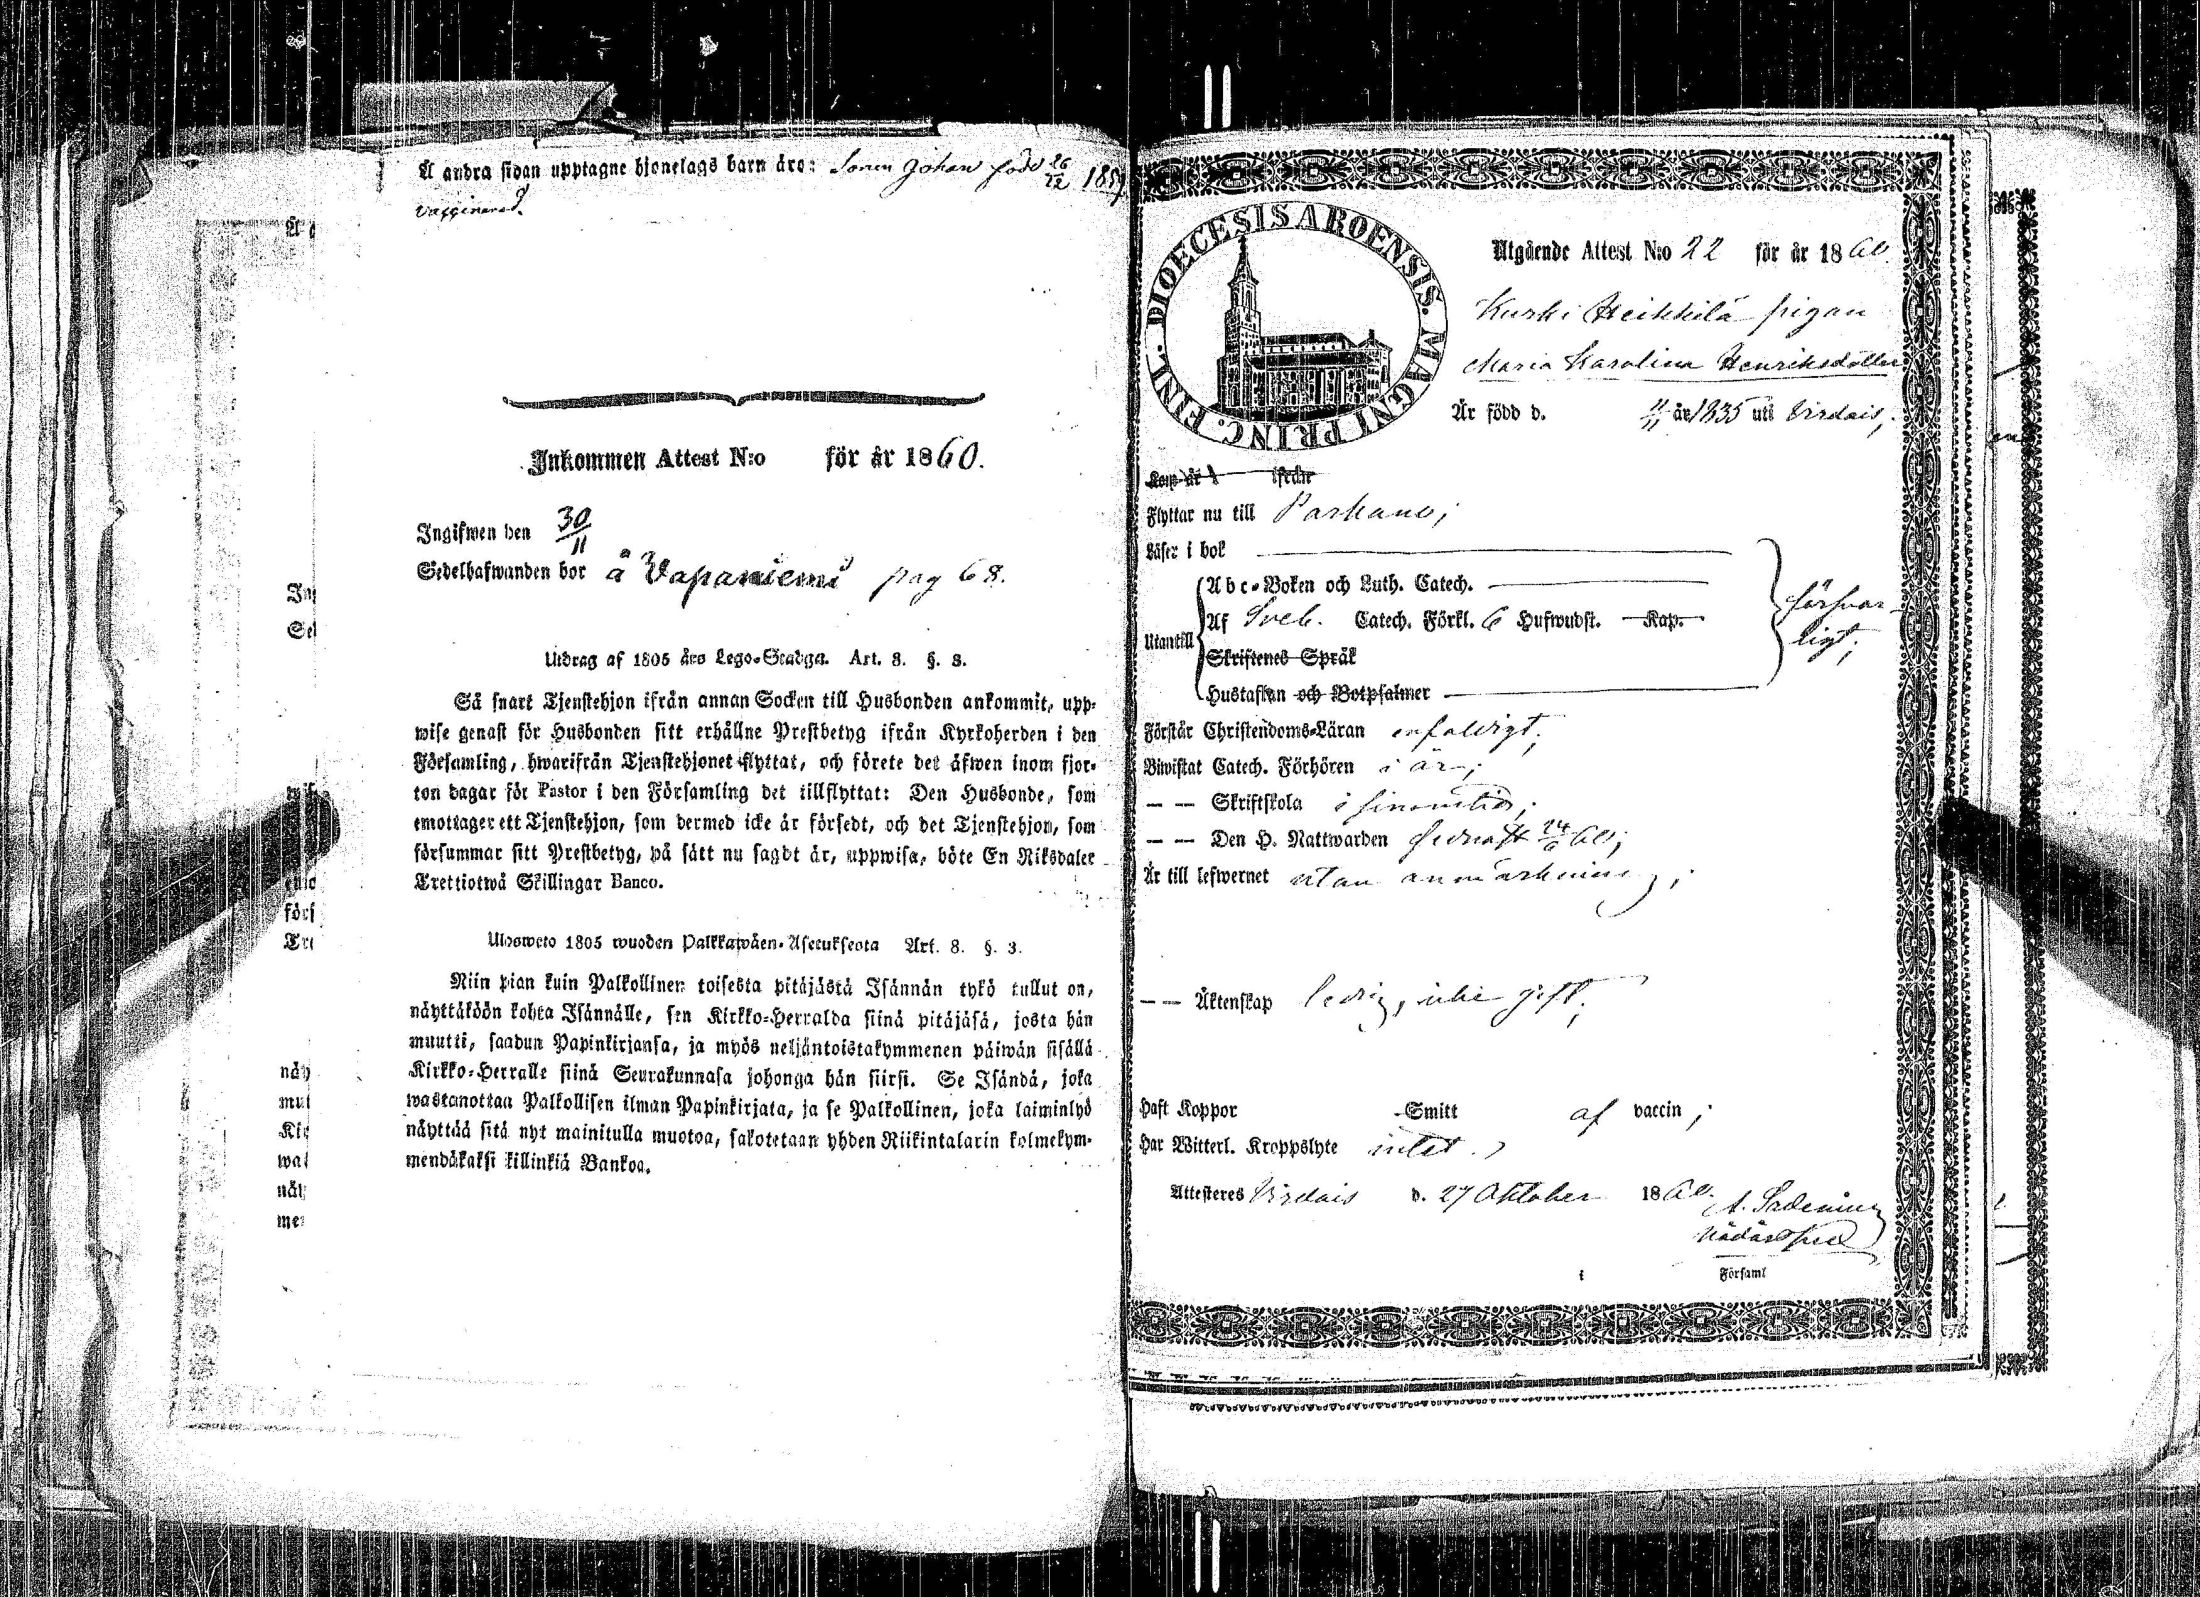 Å andra sidan upptagne hjonelags barn äro: Sonen Johan född 26/12 1859
vaccinerad.
Inkommen Attest N:o för år 1860.
Ingifwen den 30/11
Sedelhafwanden bor å Vapaniemi pag 68.
Utdrag af 1805 års Lego-Stadga. Art. 8. §. 3.
Så snart Tjenstehjon ifrån annan Socken till Husbonden ankommit, upp-
wise genast för Husbonden sitt erhållne Prestbetyg ifrån Kyrkoherden i den
Församling, hwarifrån Tjenstehjonet flyttat, och förete det äfwen inom fjor-
ton dagar för Pastor i den Församling det tillflyttat: Den Husbonde, som
emottager ett Tjenstehjon, som dermed icke är försedt, och det Tjenstehjon, som
försummar sitt Prestbetyg, på sätt nu sagdt är, uppwisa, böte En Riksdaler
Trettiotwå Skillingar Banco.
Ulosweto 1805 wuoden Palkkawäen-Asetuksesta Art. 8. §. 3.
Niin pian kuin Palkollinen toisesta pitäjästä Isännän tykö tullut on,
näyttäköön kohta Isännälle, sen Kirkko-Herralda siinä pitäjäsä, josta hän
muutti, saadun Papinkirjansa, ja myös neljäntoistakymmenen päiwän sisällä
Kirkko-Herralle siinä Seurakunnasa johonga hän siirsi. Se Isändä, joka
wastanottaa Palkollisen ilman Papinkirjata, ja se Palkollinen, joka laiminlyö
näyttää sitä nyt mainitulla muotoa, sakotetaan yhden Riikintalarin kolmekym-
mendäkaksi killinkiä Bankoa.
DIOECESIS ABOENSIS. MAGNI PRINC. FINL.
Utgående Attest N:o 22 för år 1860.
Kurki Heikkilä pigan
Maria Karolina Henriksdotter
Är född d. 11/11 år 1835 uti Virdois;
Flyttar nu till Parkano;
Läser i bok
Abc-Boken och Luth. Catech.
Utantill Af Sveb. Catech. Förkl. 6 Hufwudst. Kap.
Skriftenes Språk
Hustaflan och Botpsalmer
försvar-
ligt;
Förstår Christendoms-Läran enfaldigt;
Biwistat Catech. Förhören i år;
— — Skriftskola i sin tid;
— — Den H. Nattwarden sednast 24/6 60;
Är till lefwernet utan anmärkning;
— — Äktenskap ledig, icke gift;
Haft Koppor Smitt af vaccin;
Har Witterl. Kroppslyte intet.
Attesteres Virdois d. 27 Oktober 1860.
i Församl